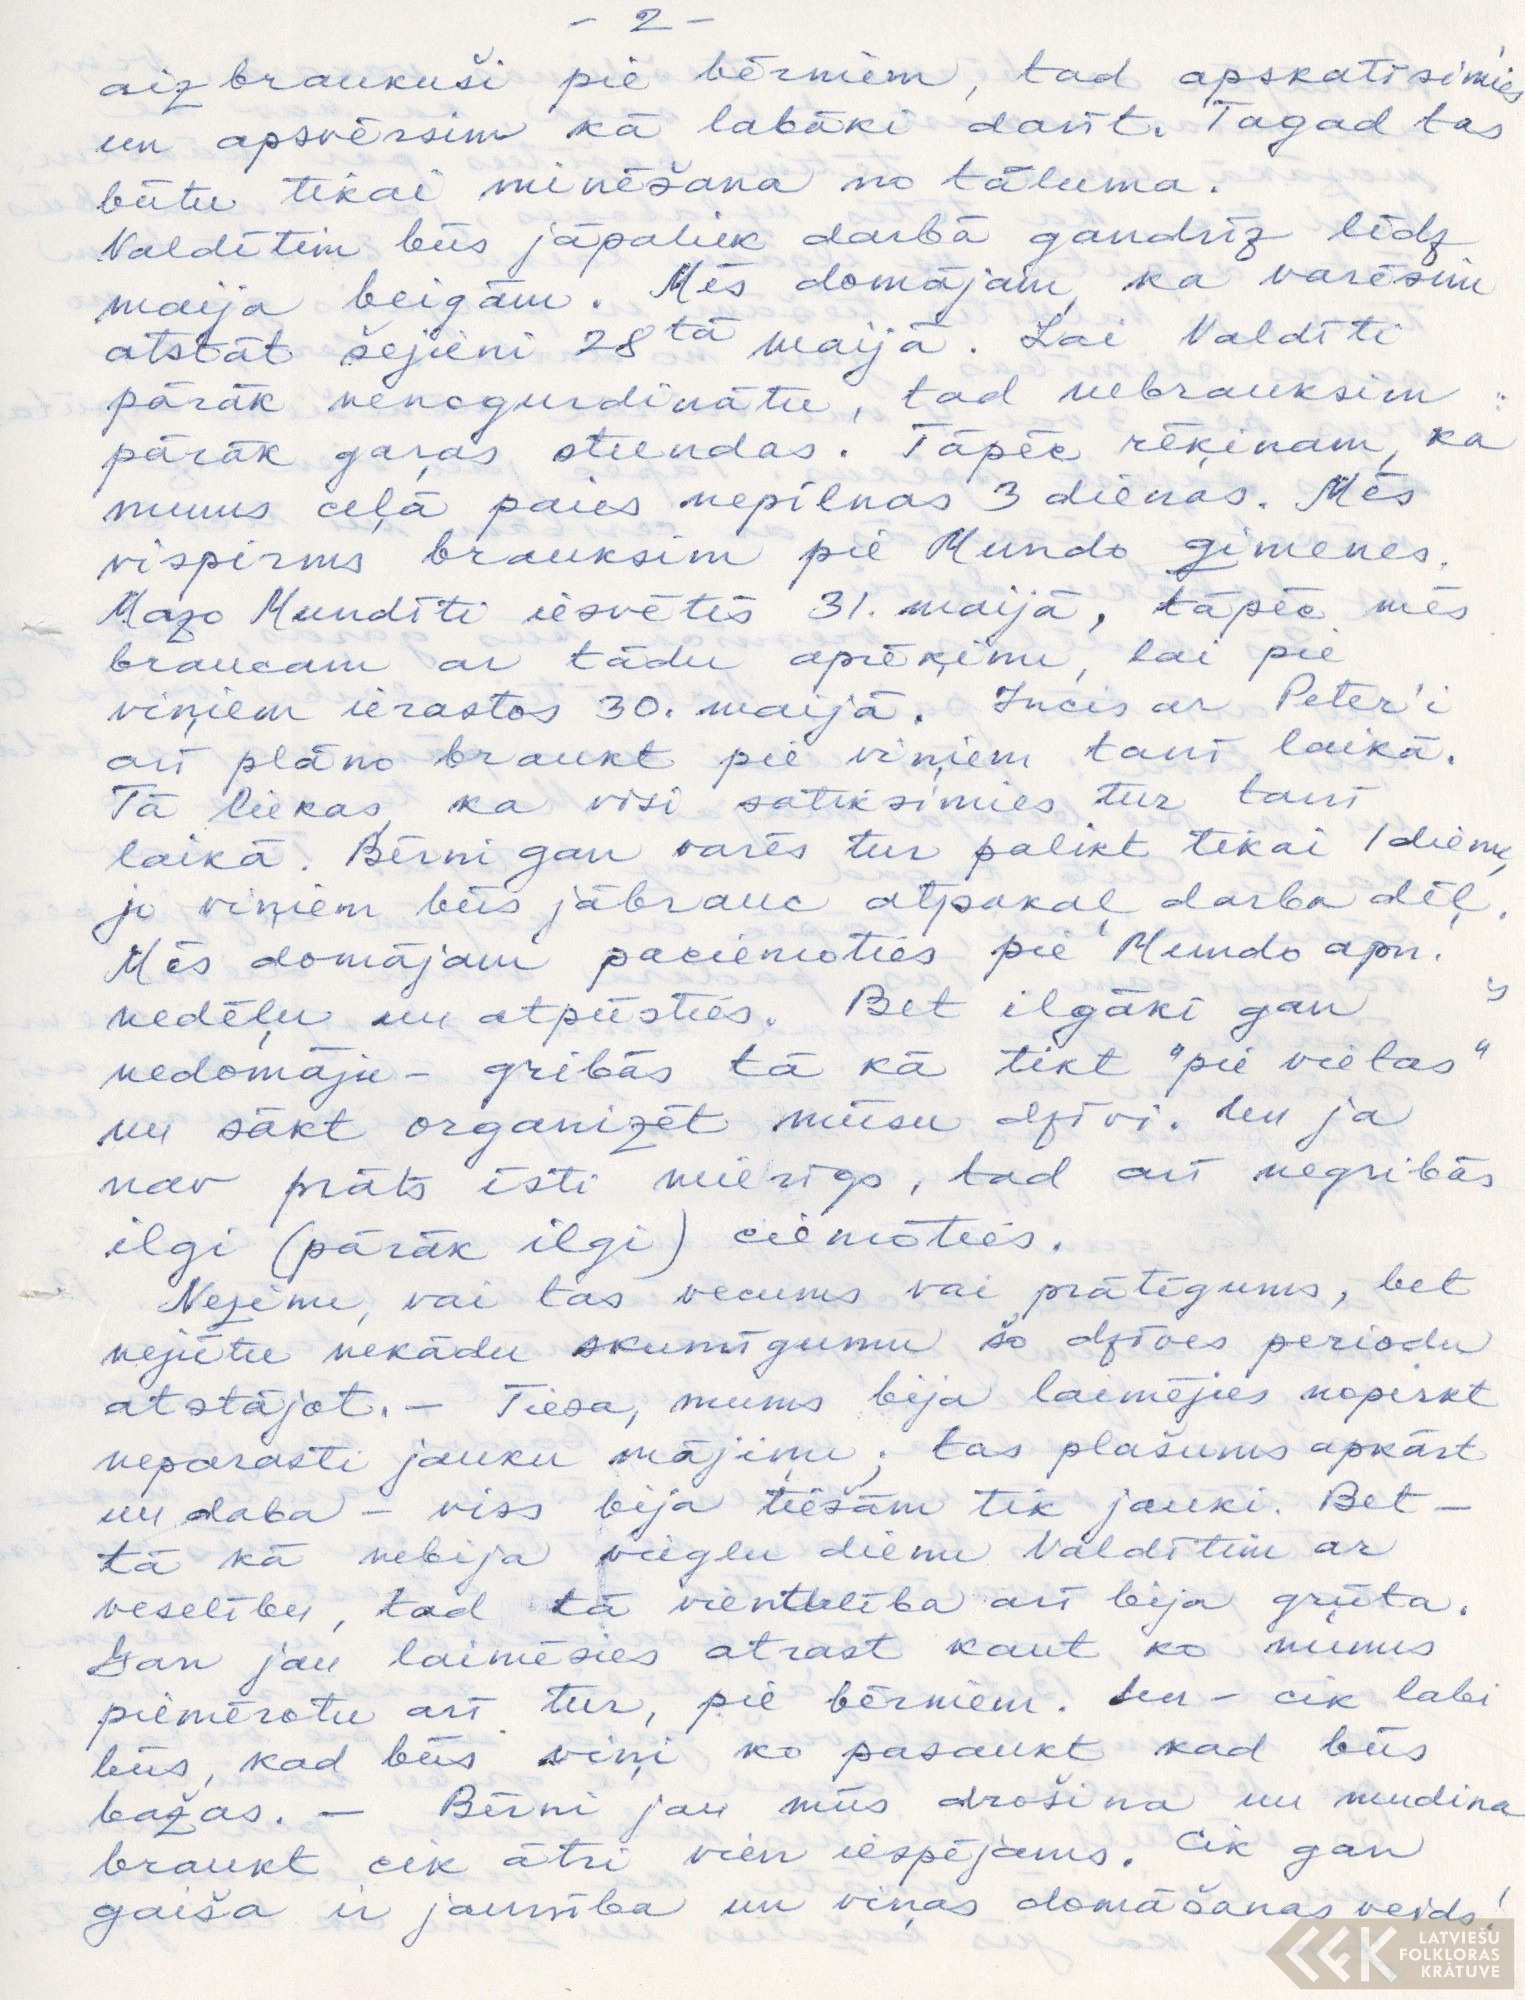 - 2 -
aizbraukuši pie bērniem, tad apskatīsimies
un apsvērsim kā labāki darīt. Tagad tas
būtu tikai minēšana no tāluma.
Valdītim būs jāpaliek darbā gandrīz līdz
maija beigām. Mēs domājam, ka varēsim
atstāt šejieni 28tā maijā. Lai Valdīti
pārāk nenogurdinātu, tad nebrauksim
pārāk garas stundas. Tāpēc rēķinam, ka
mums ceļā paies nepilnas 3 dienas. Mēs
vispirms brauksim pie Mundo ģimenes.
Mazo Mundīti iesvētīs 31. maijā, tāpēc mēs
braucam ar tādu aprēķinu, lai pie
viņiem ierastos 30. maijā. Incis ar Peter'i
arī plāno braukt pie viņiem tanī laikā.
Tā liekas, ka visi satiksimies tur tanī
laikā. Bērni gan varēs tur palikt tikai 1 dienu,
jo viņiem būs jābrauc atpakaļ darba dēļ.
Mēs domājam paciemoties pie Mundo apm.
nedēļu un atpūsties. Bet ilgāki gan
nedomāju - gribās tā kā tikt "pie vietas"
un sākt organizēt mūsu dzīvi. Un ja
nav prāts īsti mierīgs, tad arī negribās
ilgi (pārāk ilgi) ciemoties.
Nezinu, vai tas vecums vai prātīgums, bet
nejūtu nekādu skumīgumu šo dzīves periodu
atstājot. - Tiesa, mums bija laimējies nopirkt
neparasti jauku mājiņu; tas plašums apkārt
un daba - viss bija tiešām tik jauki. Bet -
tā kā nebija vieglu dienu Valdītim ar
veselību, tad tā vientulība arī bija grūta.
Gan jau laimēsies atrast kaut ko mums
piemērotu arī tur, pie bērniem. Un - cik labi
būs, kad būs viņi ko pasaukt kad būs
bažas. - Bērni jau mūs drošina un mudina
braukt cik ātri vien iespējams. Cik gan
gaiša ir jaunība un viņas domāšanas veids!
LATVIEŠU
FOLKLORAS
KRĀTUVE